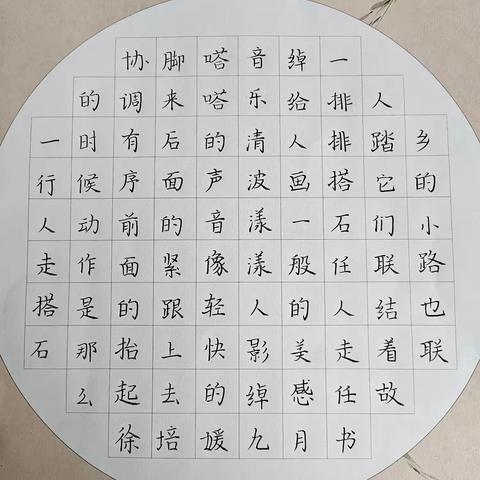 一行人走搭石
的时候动作是那么
协调有序前面的抬起
脚来后面的紧跟上去
嗒嗒的声音像轻快的
音乐清波漾漾人影绰
绰给人画一般的美感
一排排搭石任人走任
人踏它们联结着故
乡的小路也联
徐培媛九月书